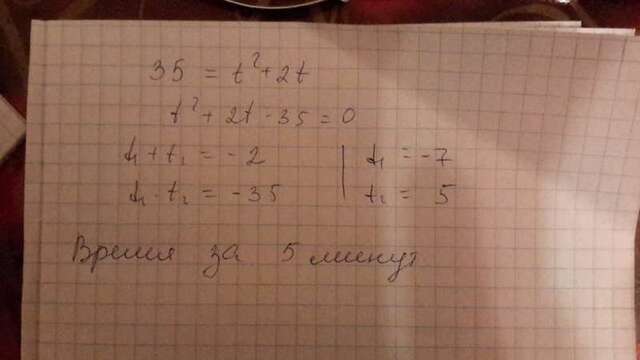 35 = t² + 2t
t² + 2t - 35 = 0
t₁ + t₂ = -2 | t₁ = -7
t₁ · t₂ = -35 | t₂ = 5
Время за 5 минут